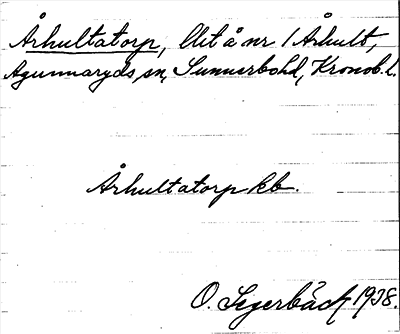 Århultatorp, lht å nr 1 Århult,
Agunnaryds sn, Sunnerbo hd, Kronob. l.
Århultatorp kb.
O. Segerbäck 1938.